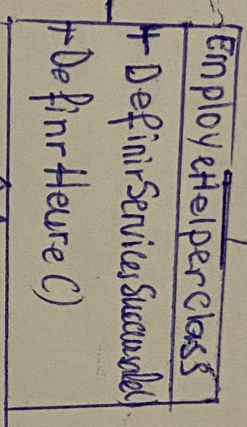 EmployeHelperclass
+ DefinirServicesSuccursale()
+ DefinirHeure()